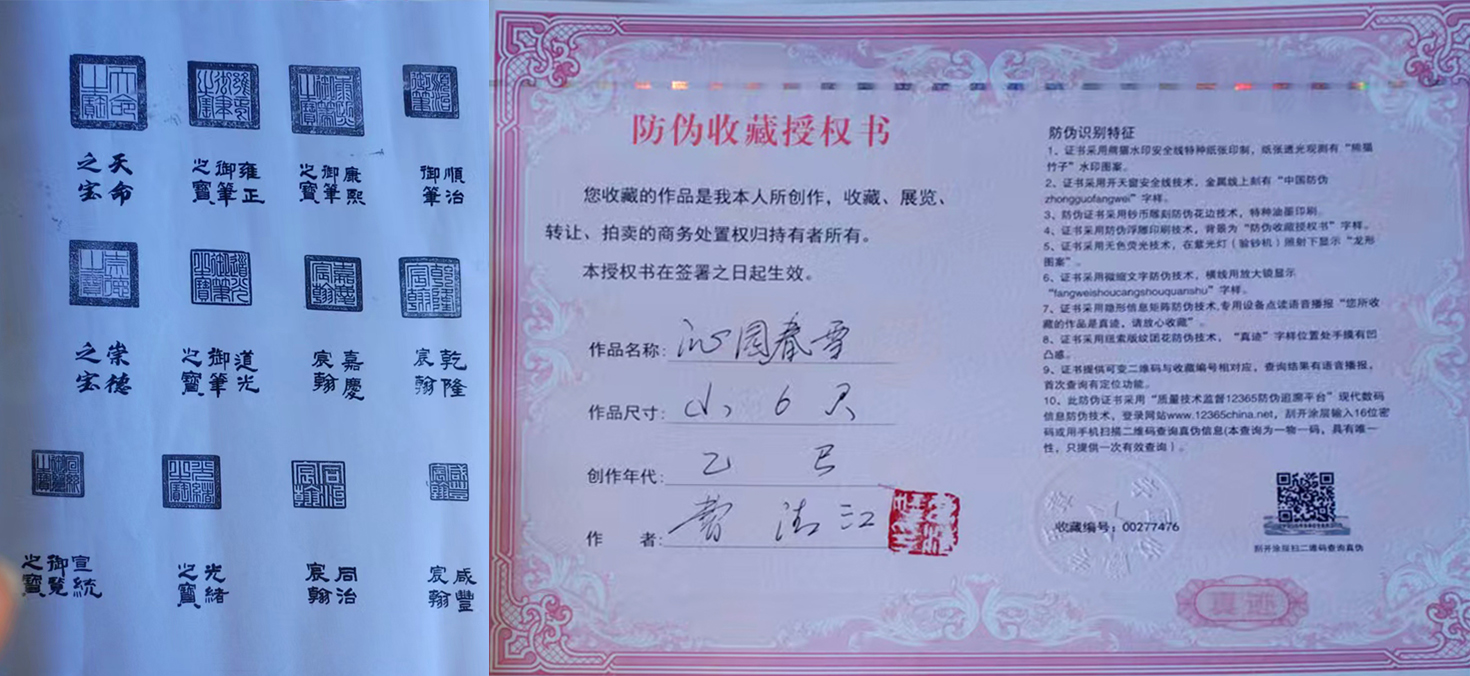 天命之宝
雍正御筆之寶
康熙御筆之寶
順治御筆
崇德之宝
道光御筆之寶
嘉慶宸翰
乾隆宸翰
宣統御覽之寶
光緒之寶
同治宸翰
咸豐宸翰
防伪收藏授权书
您收藏的作品是我本人所创作，收藏、展览、
转让、拍卖的商务处置权归持有者所有。
本授权书在签署之日起生效。
作品名称：沁园春雪
作品尺寸：小、6尺
创作年代：乙巳
作 者：
防伪识别特征
1、证书采用熊猫水印安全线特种纸张印制，纸张透光观测有“熊猫
竹子”水印图案。
2、证书采用开天窗安全线技术，金属线上刻有“中国防伪
zhongguofangwei”字样。
3、防伪证书采用钞币雕刻防伪花边技术，特种油墨印刷。
4、证书采用防伪浮雕印刷技术，背景为“防伪收藏授权书”字样。
5、证书采用无色荧光技术，在紫光灯（验钞机）照射下显示“龙形
图案”。
6、证书采用微缩文字防伪技术，横线用放大镜显示
“fangweishoucangshouquanshu”字样。
7、证书采用隐形信息矩阵防伪技术,专用设备点读语音播报“您所收
藏的作品是真迹，请放心收藏”。
8、证书采用纽索版纹团花防伪技术，“真迹”字样位置处手摸有凹
凸感。
9、证书提供可变二维码与收藏编号相对应，查询结果有语音播报，
首次查询有定位功能。
10、此防伪证书采用“质量技术监督12365防伪追溯平台”现代数码
信息防伪技术，登录网站www.12365china.net，刮开涂层输入16位密
码或用手机扫描二维码查询真伪信息(本查询为一物一码，具有唯一
性，只提供一次有效查询）.
收藏编号：00277476
刮开涂层扫二维码查询真伪